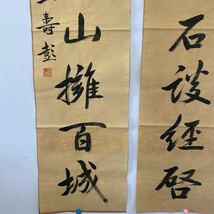 石談經啓
山擁百城
壽彭